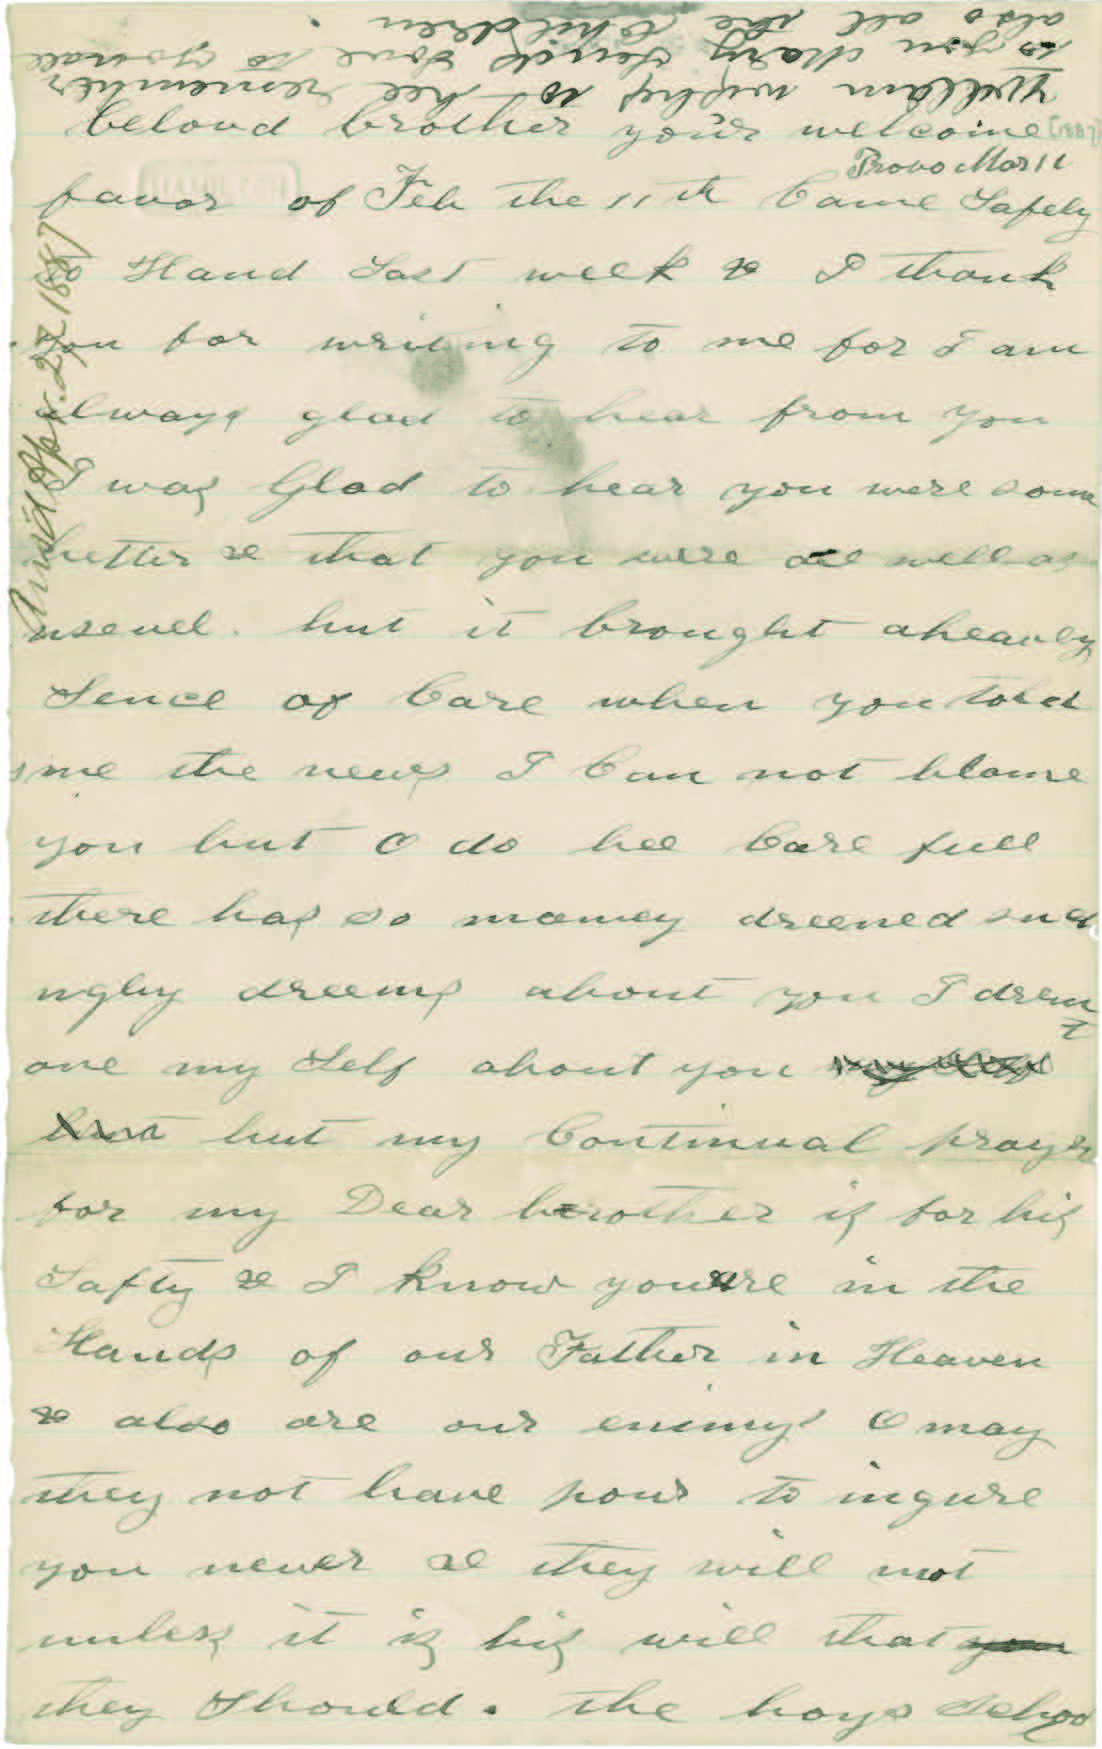 William wishes to bee remember
to you Mary sends love to you all
also all the Children
beloved brother your welcome [1887]
Provo Mar 11
favor of Feb the 11th Came Safely
HAMILTON
to Hand Last week & I thank
you for writing to me for I am
always glad to hear from you
I was Glad to hear you were some
better & that you were all well as
usuel. but it brought a heavey
Sence of Care when you told
me the news I Can not blame
you but O do bee Care full
there has so maney dreened such
ugly dreems about you I dremt
one my Self about you
but my Continual prayer
for my Dear brother is for his
Safty & I know you are in the
Hands of our Father in Heaven
& also are our enimys O may
they not have pour to ingure
you never & they will not
unless it is his will that you
they Should. the boys School
Ansd Apr. 27 1887